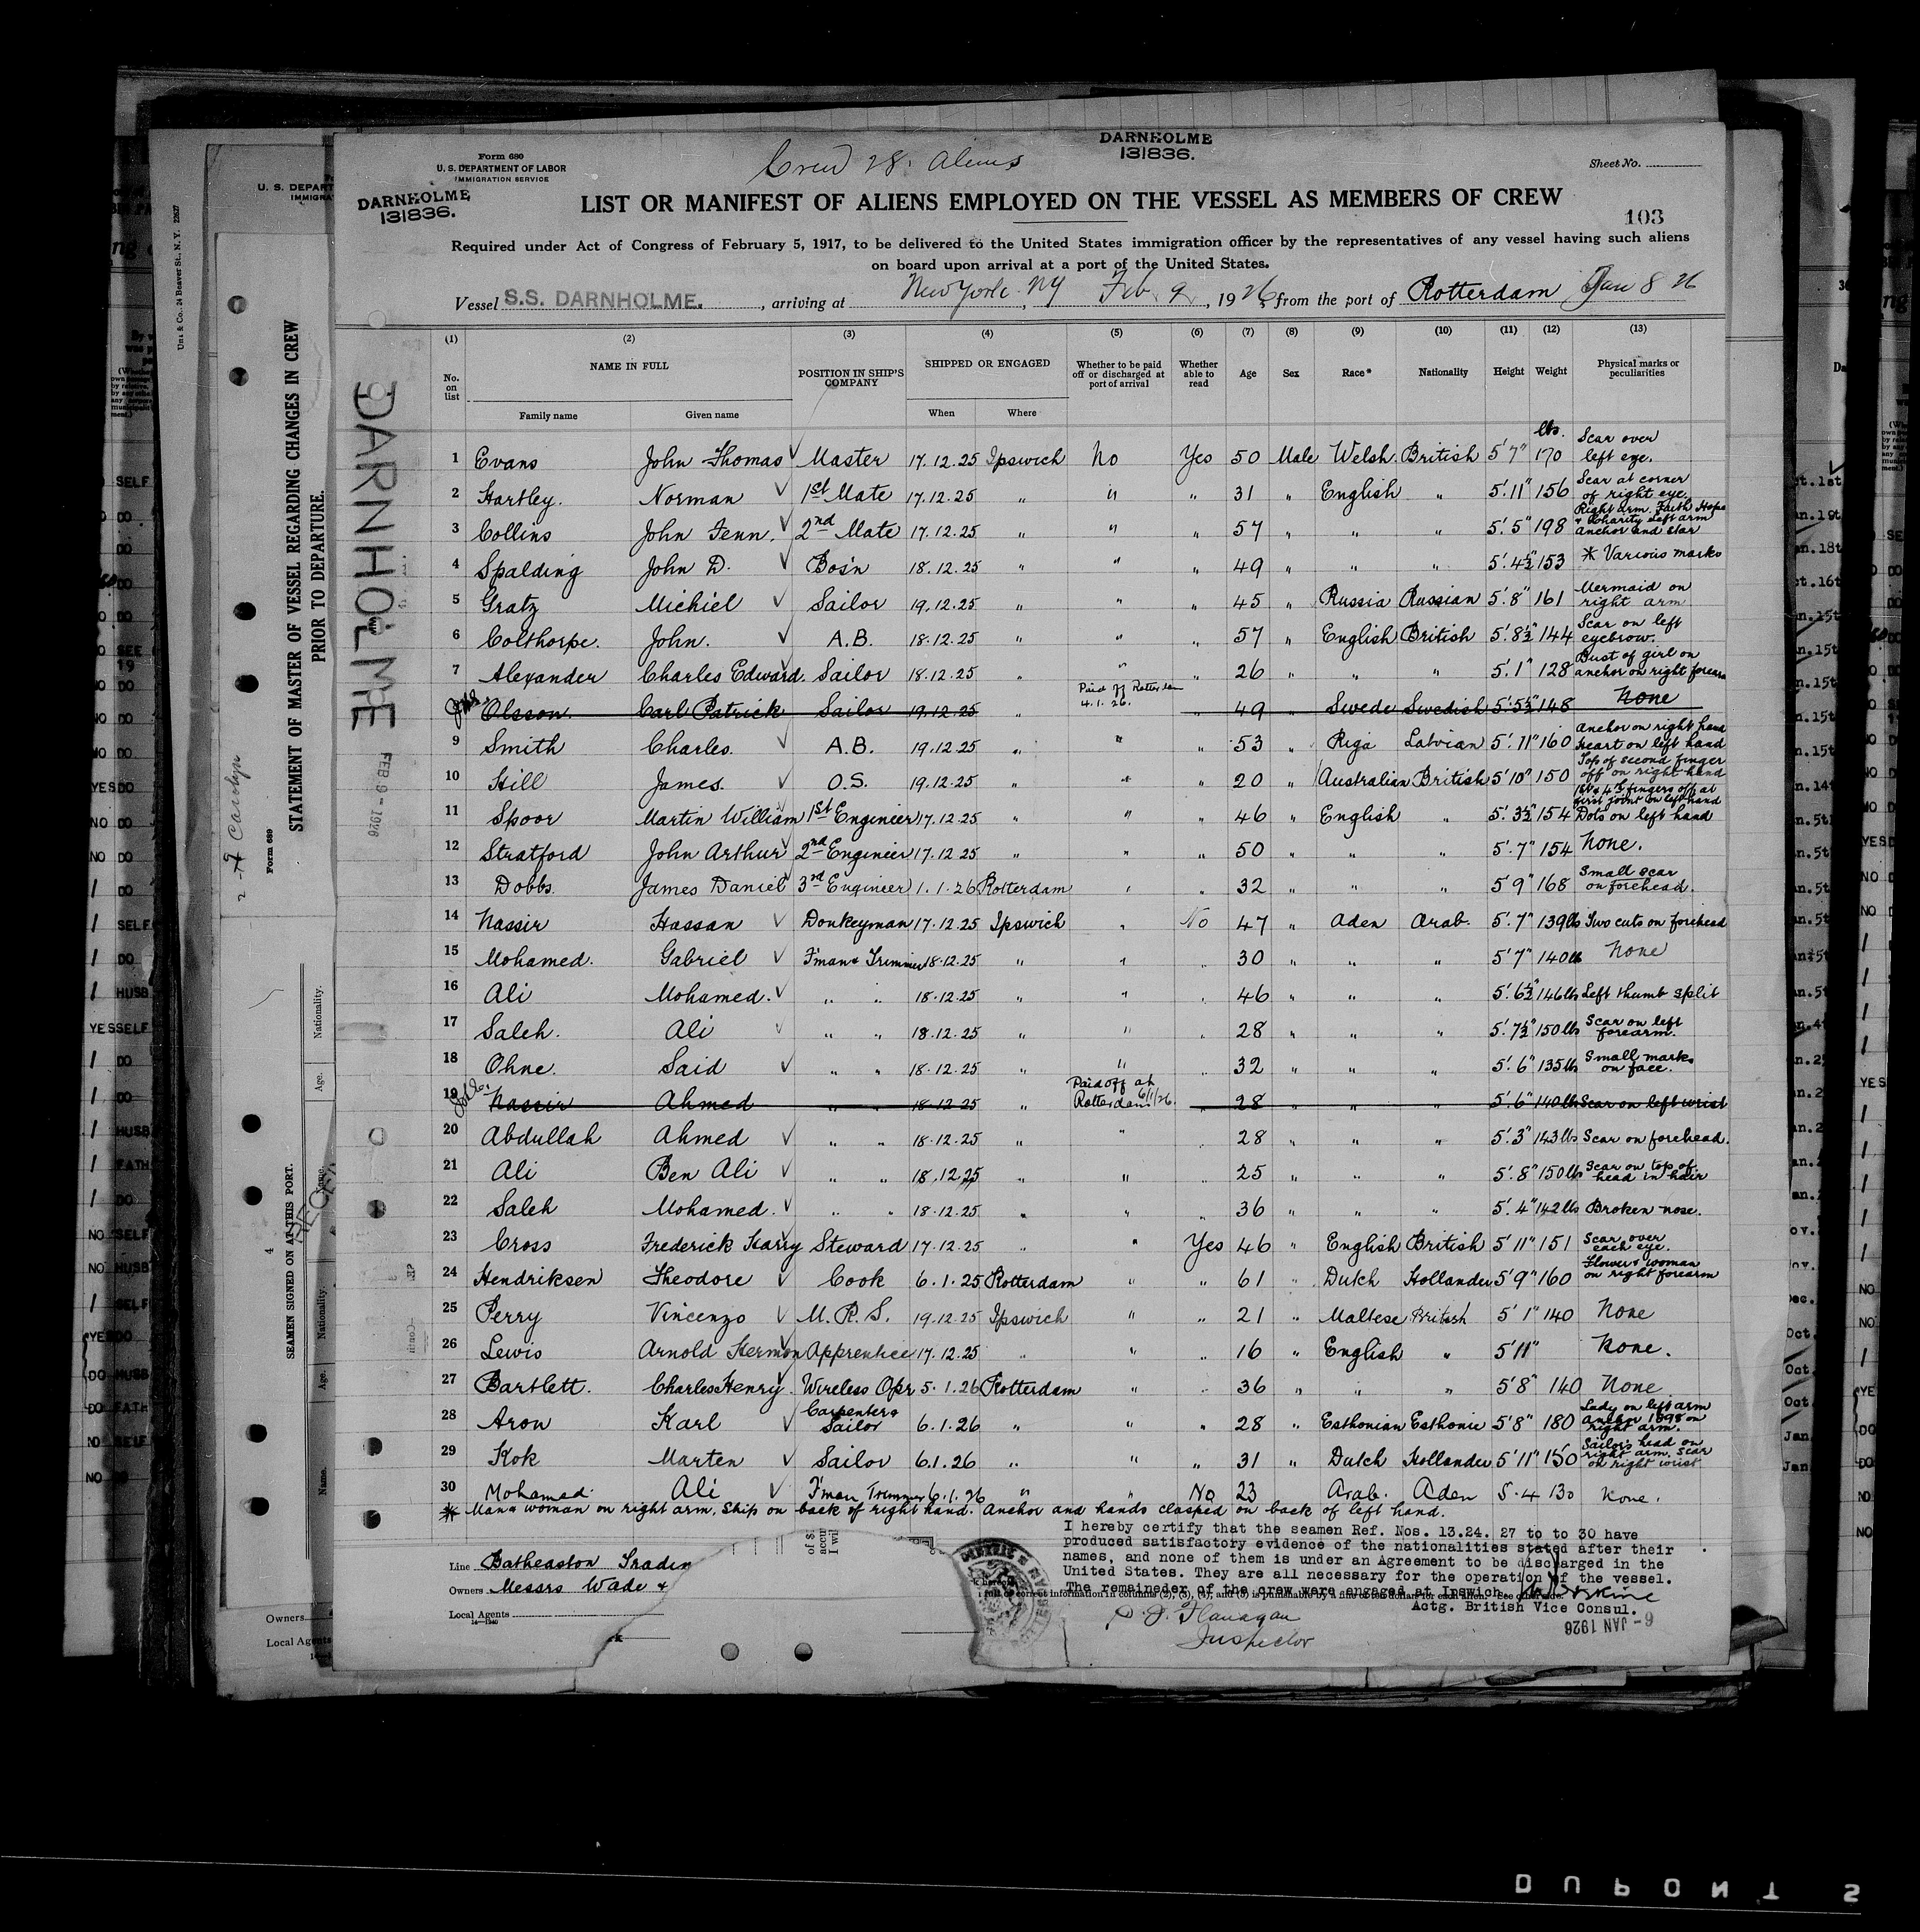 DARNHOLME
131836.
Crew 28. Aliens
Form 680
U. S. DEPARTMENT OF LABOR
IMMIGRATION SERVICE
Sheet No.
DARNHOLME
131836.
LIST OR MANIFEST OF ALIENS EMPLOYED ON THE VESSEL AS MEMBERS OF CREW
103
Required under Act of Congress of February 5, 1917, to be delivered to the United States immigration officer by the representatives of any vessel having such aliens
on board upon arrival at a port of the United States.
Vessel S.S. DARNHOLME. , arriving at New York NY , Feb. 9 , 1926, from the port of Rotterdam Jan 8 26
(1) (2) (3) (4) (5) (6) (7) (8) (9) (10) (11) (12) (13)
No. on list NAME IN FULL Family name Given name POSITION IN SHIP'S COMPANY SHIPPED OR ENGAGED When Where Whether to be paid off or discharged at port of arrival Whether able to read Age Sex Race* Nationality Height Weight Physical marks or peculiarities
lbs.
1 Evans John Thomas Master 17.12.25 Ipswich No Yes 50 Male Welsh British 5'7" 170 Scar over left eye.
2 Hartley. Norman 1st Mate 17.12.25 " " " 31 " English " 5'.11" 156 Scar at corner of right eye.
3 Collins John Fenn. 2nd Mate 17.12.25 " " " 57 " " " 5'.5" 198 Right arm. Faith Hope & Charity Left arm anchor and star
4 Spalding John D. Bos'n 18.12.25 " " " 49 " " " 5'.4½" 153 * Various marks
5 Gratz Michiel Sailor 19.12.25 " " " 45 " Russia Russian 5'.8" 161 Mermaid on right arm
6 Colthorpe. John. A.B. 18.12.25 " " " 57 " English British 5'.8½" 144 Scar on left eyebrow.
7 Alexander Charles Edward. Sailor 18.12.25 " " " 26 " " " 5'.1" 128 Bust of girl on anchor on right forearm
Olsson. Carl Patrick Sailor 19.12.25 " Paid off Rotterdam 4.1.26. " 49 " Swede Swedish 5'.5½" 148 None
9 Smith Charles. A.B. 19.12.25 " " " 53 " Riga Latvian 5'.11" 160 Anchor on right hand heart on left hand
10 Hill James. O.S. 19.12.25 " " " 20 " Australian British 5'10" 150 Top of second finger off on right hand
11 Spoor Martin William 1st Engineer 17.12.25 " " " 46 " English " 5'.3½" 154 1st & 4th fingers off at first joint on left hand Dots on left hand
12 Stratford John Arthur 2nd Engineer 17.12.25 " " " 50 " " " 5'.7" 154 None.
13 Dobbs. James Daniel 3rd Engineer 1.1.26 Rotterdam " 32 " " " 5 9" 168 Small scar on forehead.
14 Nassir Hassan Donkeyman 17.12.25 Ipswich " No 47 " Aden Arab. 5'.7" 139lbs Two cuts on forehead
15 Mohamed. Gabriel F'man & Trimmer 18.12.25 " " " 30 " " " 5'7" 140lb None
16 Ali Mohamed. " " 18.12.25 " " " 46 " " " 5'.6½" 146lbs Left thumb split
17 Saleh. Ali " " 18.12.25 " " " 28 " " " 5'.7½" 150lbs Scar on left forearm.
18 Ohne. Said " " 18.12.25 " " " 32 " " " 5'.6" 135lb Small marks on face.
19 Nassir Ahmed " " 18.12.25 " Paid off at Rotterdam 6/1/26. " 28 " " " 5'.6" 140lbs Scar on left wrist
20 Abdullah Ahmed " " 18.12.25 " " " 28 " " " 5'.3" 143lbs Scar on forehead.
21 Ali Ben Ali " " 18.12.25 " " " 25 " " " 5'.8" 150lbs Scar on top of head in hair
22 Saleh Mohamed. " " 18.12.25 " " " 36 " " " 5'.4" 142lbs Broken nose.
23 Cross Frederick Harry Steward 17.12.25 " " Yes 46 " English British 5'11" 151 Scar over each eye.
24 Hendriksen Theodore Cook 6.1.25 Rotterdam " " 61 " Dutch Hollander 5'9" 160 Flower & woman on right forearm
25 Perry Vincenzo M. R. S. 19.12.25 Ipswich " " 21 " Maltese British 5'1" 140 None
26 Lewis Arnold Hermon Apprentice 17.12.25 " " " 16 " English " 5'11" None.
27 Bartlett. Charles Henry. Wireless Opr 5.1.26 Rotterdam " " 36 " " " 5'8" 140 None
28 Aron Karl Carpenter & Sailor 6.1.26 " " " 28 " Esthonian Esthonia 5'8" 180 Lady on left arm anchor 1898 on right arm.
29 Kok Marten Sailor 6.1.26 " " " 31 " Dutch Hollander 5'11" 150 Sailor's head on right arm. Scar on right wrist
30 Mohamed. Ali F'man Trimmer 6.1.26 " " No 23 Arab. Aden 5.4 130 None.
* Man & woman on right arm, Ship on back of right hand. Anchor and hands clasped on back of left hand.
I hereby certify that the seamen Ref. Nos. 13.24. 27 to to 30 have
produced satisfactory evidence of the nationalities stated after their
names, and none of them is under an Agreement to be discharged in the
United States. They are all necessary for the operation of the vessel.
The remaineder of the crew were engaged at Ipswich.
Actg. British Vice Consul.
6- JAN 1926
Line Batheaston Tradin
Owners Messrs Wade &
Local Agents
14—1040
D. J. Flanagan
Inspector
DARNHOLME
FEB 9 - 1926
STATEMENT OF MASTER OF VESSEL REGARDING CHANGES IN CREW
PRIOR TO DEPARTURE.
Form 689
SEAMEN SIGNED ON AT THIS PORT.
Nationality.
Age.
Name.
Owners
Local Agents
DUPONT